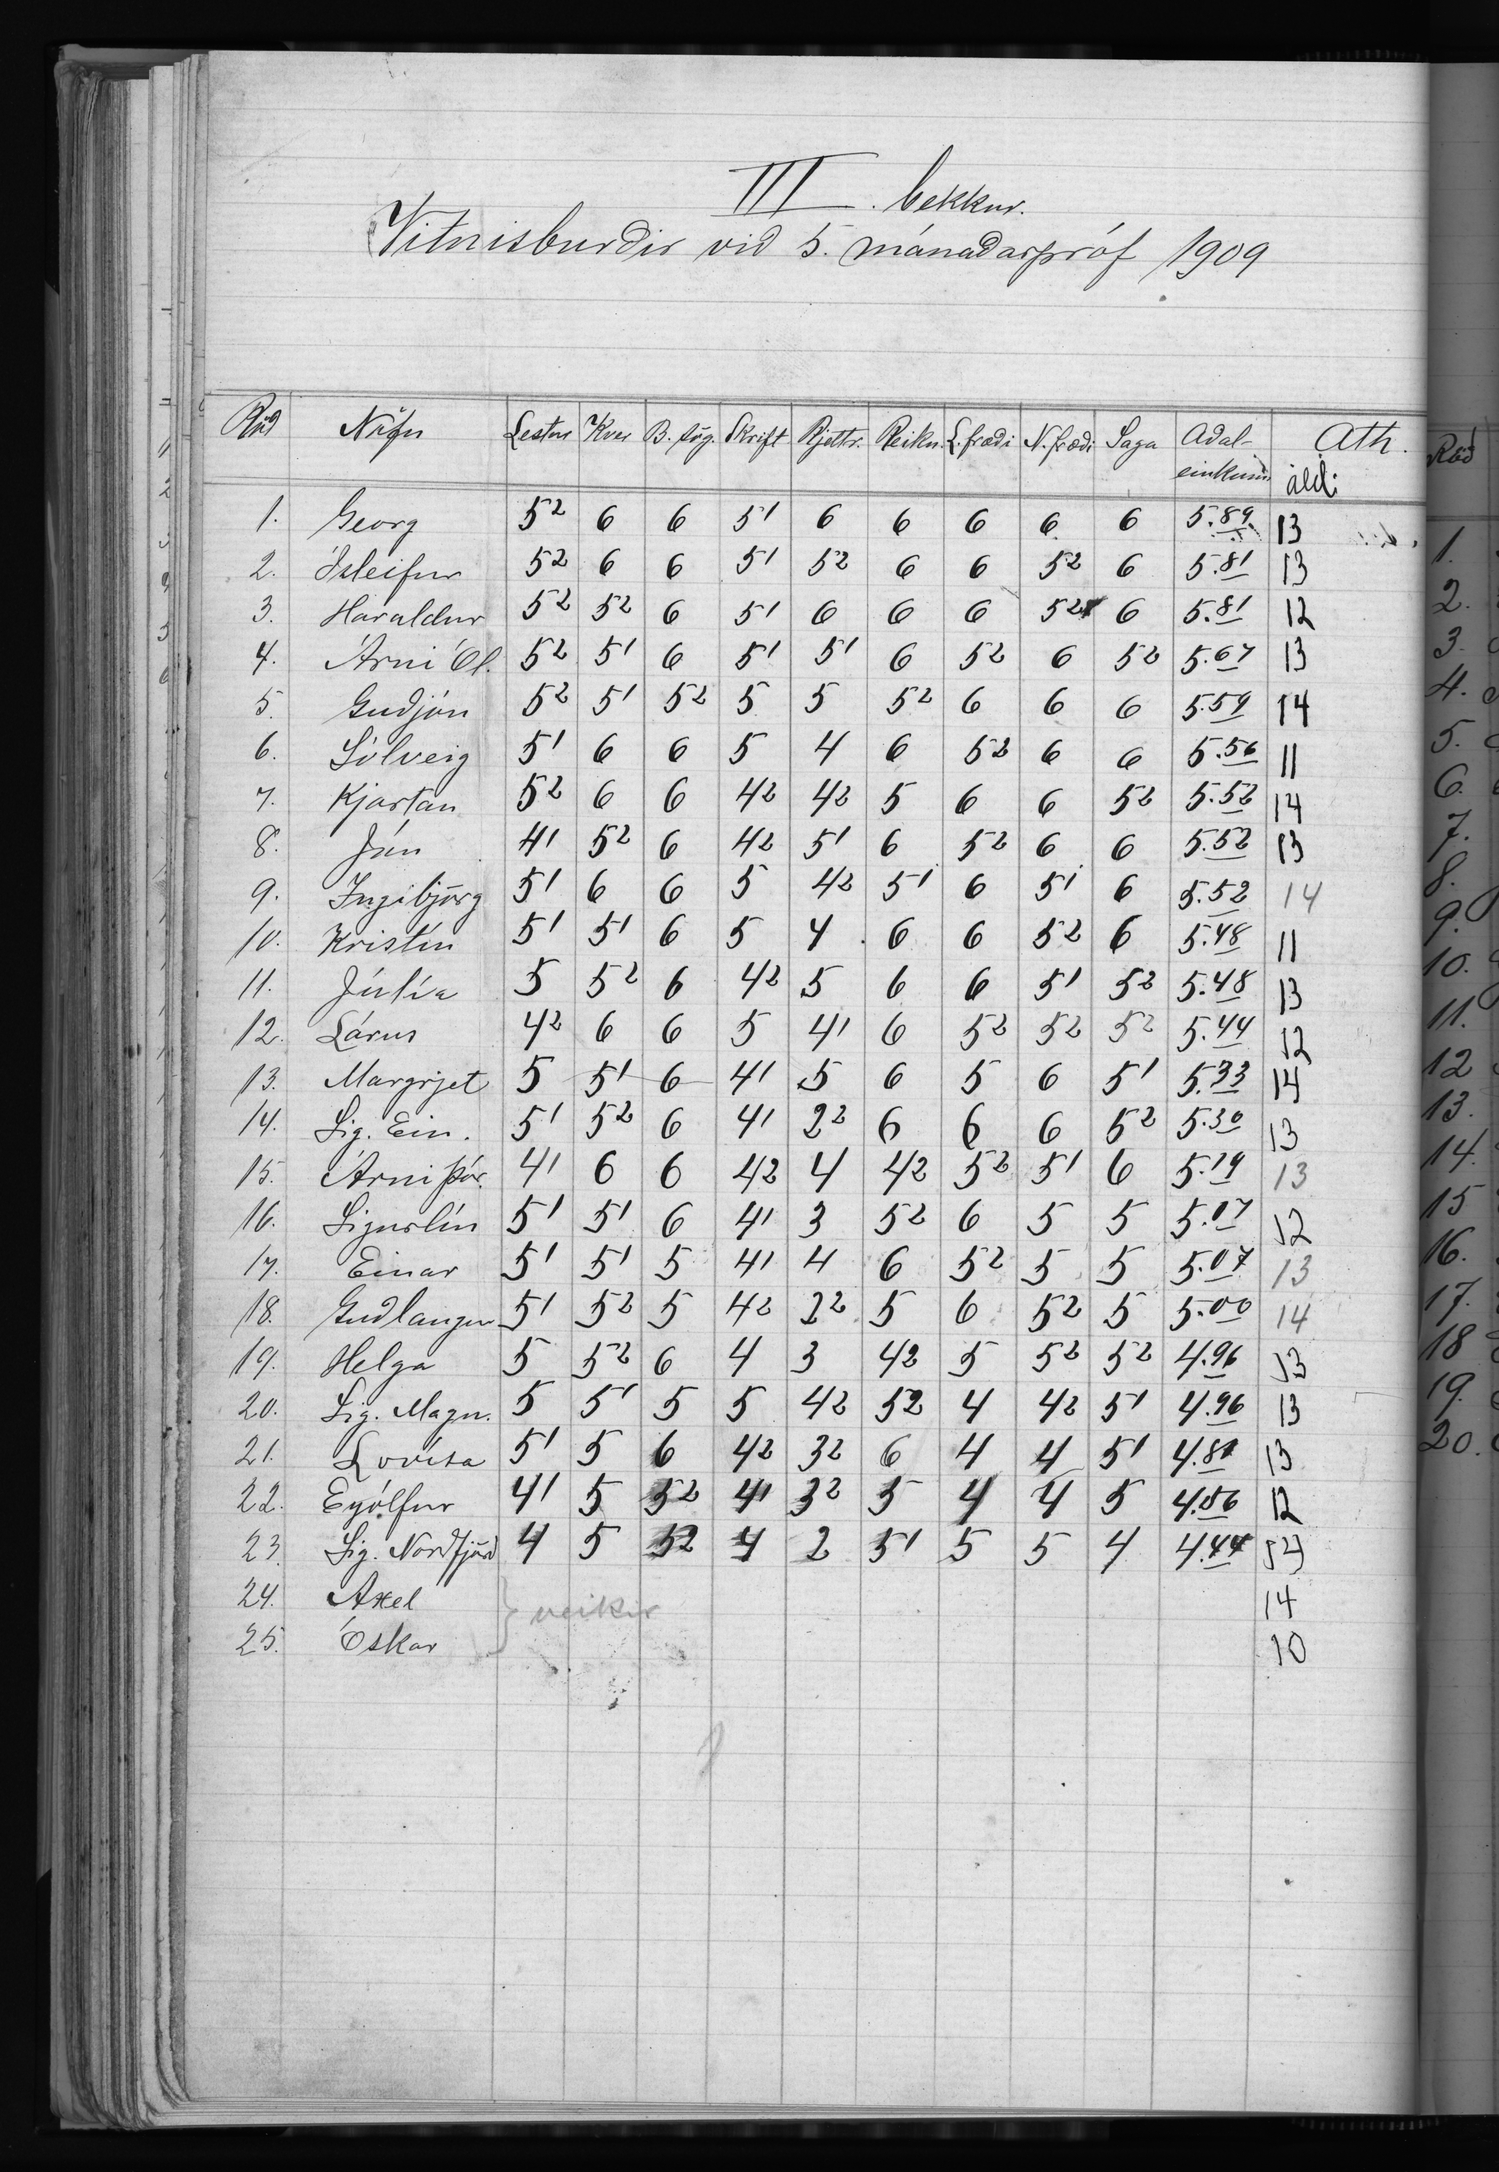 III. bekkur.
Vitnisburðir við 5. mánaðarpróf 1909
Röð Nöfn Lestur Kver B. sög. Skrift Rjettr. Reikn. L.fræði N.fræði Saga Aðal-einkunn Ath. aldr
1. Georg 5² 6 6 5¹ 6 6 6 6 6 5.89 13
2. Ísleifur 5² 6 6 5¹ 5² 6 6 5² 6 5.81 13
3. Haraldur 5² 5² 6 5¹ 6 6 6 5² 6 5.81 12
4. Árni Ól. 5² 5¹ 6 5¹ 5¹ 6 5² 6 5² 5.67 13
5. Guðjón 5² 5¹ 5² 5 5 5² 6 6 6 5.59 14
6. Sólveig 5¹ 6 6 5 4 6 5² 6 6 5.56 11
7. Kjartan 5² 6 6 4² 4² 5 6 6 5² 5.52 14
8. Jón 4¹ 5² 6 4² 5¹ 6 5² 6 6 5.52 13
9. Ingibjörg 5¹ 6 6 5 4² 5¹ 6 5¹ 6 5.52 14
10. Kristín 5¹ 5¹ 6 5 4 6 6 5² 6 5.48 11
11. Júlía 5 5² 6 4² 5 6 6 5¹ 5² 5.48 13
12. Lárus 4² 6 6 5 4¹ 6 5² 5² 5² 5.44 12
13. Margrjet 5 5¹ 6 4¹ 5 6 5 6 5¹ 5.33 14
14. Sig. Ein. 5¹ 5² 6 4¹ 2² 6 6 6 5² 5.30 13
15. Árni Þór. 4¹ 6 6 4² 4 4² 5² 5¹ 6 5.19 13
16. Sigurlín 5¹ 5¹ 6 4¹ 3 5² 6 5 5 5.07 12
17. Einar 5¹ 5¹ 5 4¹ 4 6 5² 5 5 5.07 13
18. Guðlaugur 5¹ 5² 5 4² 2² 5 6 5² 5 5.00 14
19. Helga 5 5² 6 4 3 4² 5 5² 5² 4.96 13
20. Sig. Magn. 5 5¹ 5 5 4² 5² 4 4² 5¹ 4.96 13
21. Lovísa 5¹ 5 6 4² 3² 6 4 4 5¹ 4.89 13
22. Eyólfur 4¹ 5 5² 4¹ 3² 5 4 4 5 4.56 12
23. Sig. Norðfjörð 4 5 5² 4 2 5¹ 5 5 4 4.44 14
24. Axel } veikir 14
25. Óskar 10
Röð
1.
2.
3.
4.
5.
6.
7.
8.
9.
10.
11.
12
13.
14.
15
16.
17.
18
19.
20.